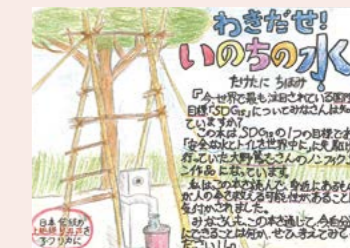 わきだせ!
いのちの水
たけたに ちほみ
『今、世界で最も注目されている国際
目標「SDGs」についてみなさんは知っ
ていますか?
この本は、SDGsの1つの目標であ
「安全な水とトイレを世界中に」に先駆け
行っていた大野篤志さんのノンフィク
ン作品になっています。
私はこの本を読んで、身近にあるもの
が人の命を救える可能性があること
気付かされました。
みなさんも、この本を通して、今自分
にできることは何か、ぜひ考えてみて
ださい!!
日本伝統の
上総掘り井戸を
アフリカに